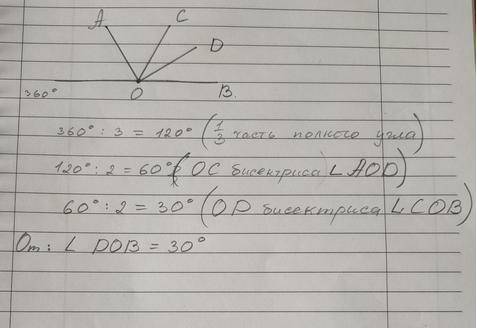 A C
D
360° O B.
360° : 3 = 120° (1/3 часть полного угла)
120° : 2 = 60° ( OC бисектриса ∠ AOD)
60° : 2 = 30° (OD бисектриса ∠ COB)
От: ∠ DOB = 30°